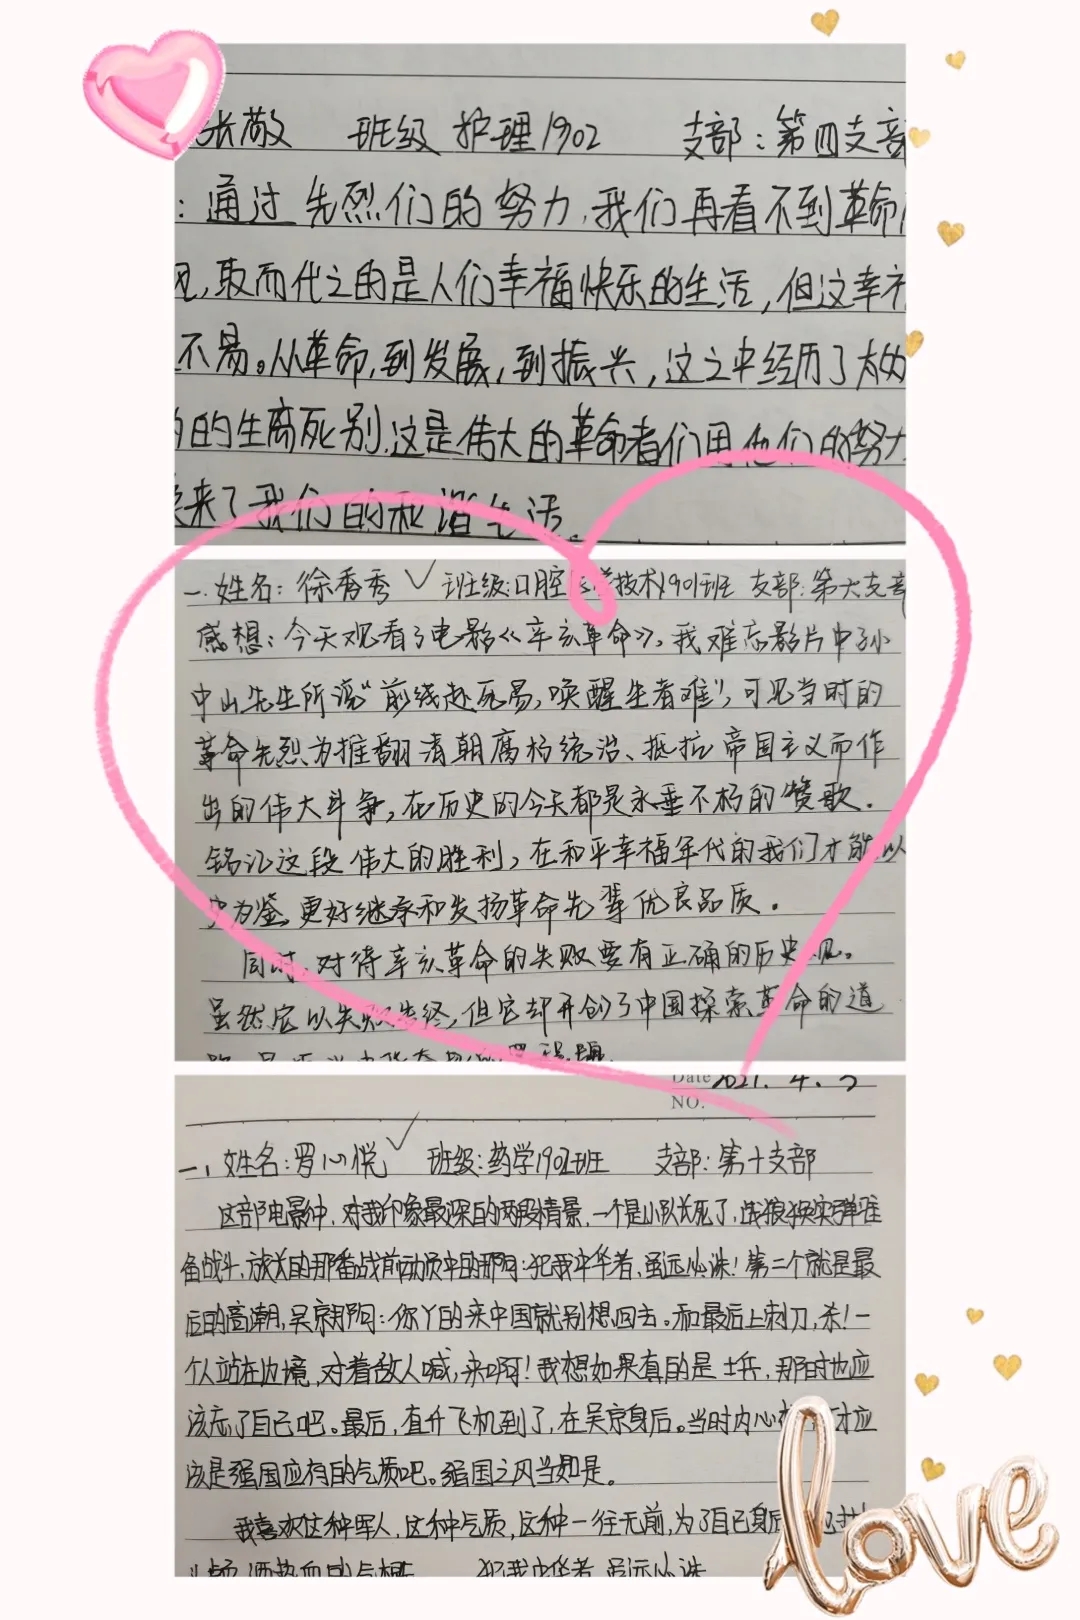 张敬 班级 护理1902 支部：第四支部
：通过先烈们的努力，我们再看不到革命
，取而代之的是人们幸福快乐的生活，但这幸福
不易。从革命，到发展，到振兴，这之中经历了太
的生离死别，这是伟大的革命者们用他们的努力
来了我们的和谐生活。
一.姓名：徐香秀 ✓ 班级：口腔医学技术1901班 支部：第六支部
感想：今天观看了电影《辛亥革命》，我难忘影片中孙
中山先生所说“前线赴死易，唤醒生者难”，可见当时的
革命先烈为推翻清朝腐朽统治、抵抗帝国主义而作
出的伟大斗争，在历史的今天都是永垂不朽的赞歌.
铭记这段伟大的胜利，在和平幸福年代的我们才能以
史为鉴，更好继承和发扬革命先辈优良品质。
同时，对待辛亥革命的失败要有正确的历史观。
虽然它以失败告终，但它却开创了中国探索革命的道
Date 2021. 4.
NO.
一、姓名：罗心悦 ✓ 班级：药学1902班 支部：第十支部
这部电影中，对我印象最深的两段情景，一个是小队长死了，战狼换实弹准
备战斗，放大的那番战前动员中的那句：犯我中华者，虽远必诛！第二个就是最
后的高潮，吴京那句：你丫的来中国就别想回去。和最后上刺刀，杀！一
个人站在边境，对着敌人喊，来啊！我想如果真的是士兵，那时也应
该忘了自己吧。最后，直升飞机到了，在吴京身后。当时内心 才应
该是强国应有的气质吧。强国之风当如是。
我喜欢这种军人，这种气质，这种一往无前，为了自己身后
犯我中华者 虽远必诛
love